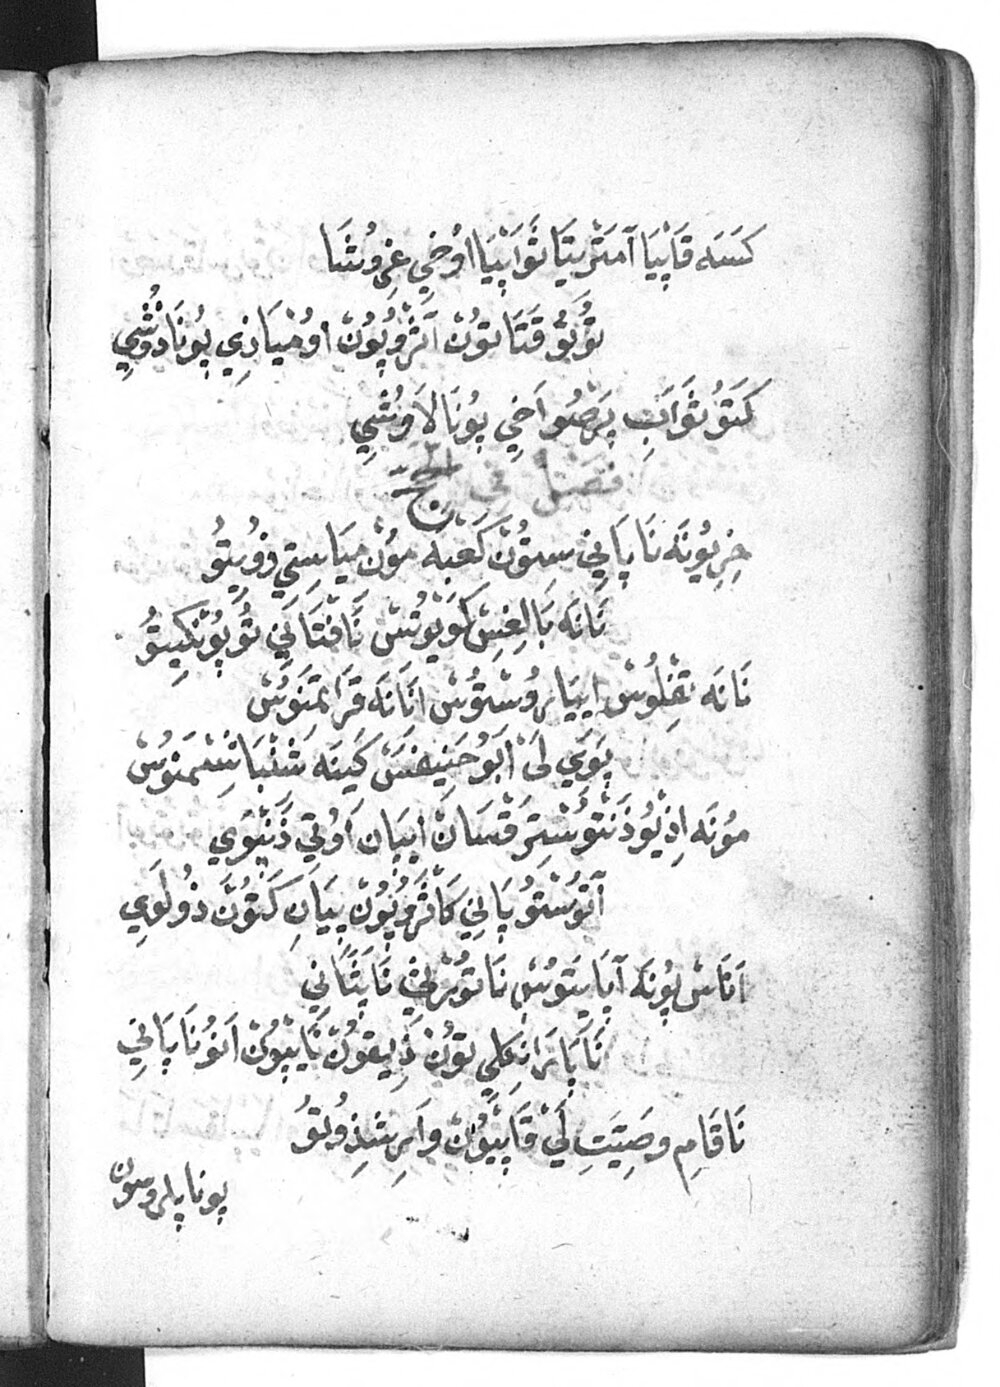 كَسَه قَاپْيَا آمَرْتِيَا ثَوَاپْيَا اوُخِي غِروُشَا
تُوتُو قَتَا تونْ آنْثْروُپُونْ اوُمْيَاذِي پُونَا دُوُشِي
كَتَوُ ثَوَابِ پَرْصُو اَخِي پُونَا لاَوُشِي
فصل في الحجّ
خِرِيوُنَه نَا پَايِي سْتُونْ كَعْبَه مُونْ مِيَاسْتِي ذوُيتُو
نَانَه بَالِغِسْ كَوْيوُتُسْ نَافْتَانِي تُو پُونْكِيتُو
نَانَه تِفْلُوسْ اِپِيَاروُسْتُوسْ اَنَانَه قَرَاتِمَنوُسْ
پَوَي لَىْ اَبوُ حَنِيفَسْ كَيِنَه شَنْبَاشِسْمَنوُسْ
مُونَه اِذِيوُ ذَنْتَوُسْتِرَقْسَانْ اِپِيَانِ اَوُتِي ذَنْپَوِي
آنْتُوسْتُو پَانِي كَافْرَوُپُونْ پِيَانِ كَتَونْ ذُولَوِي
اَنَاسْ پُونَه آپَايتَوُسْ نَاتُوتِرَلِي نَاپَثَانِي
نَاپَارَانْكِلِي تُونْ ذِيقوُنْ نَايپُونْ اَنوُنَا پَانِي
نَاقَامِ وصِيَتِ لَىْ قَاپِيوُنْ وارِسْتِنِذوُتوُ
پونا پلروسون